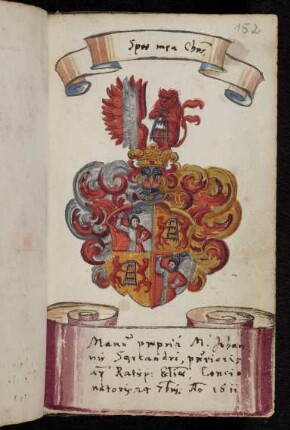 152
Spes mea Chrs.
Manu propria M. Johan
nis Sartandri,
ad Ratisp: Concio
natoris 24 7bris Ao 1611